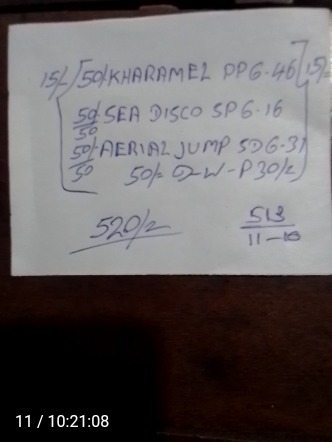 15/- 50/- KHARAMEL PP 6.46 15/-
50/50 SEA DISCO SP 6.16
50/50 AERIAL JUMP SD 6.31
50/- W-P 30/-
520/-
513
11-10
11 / 10:21:08